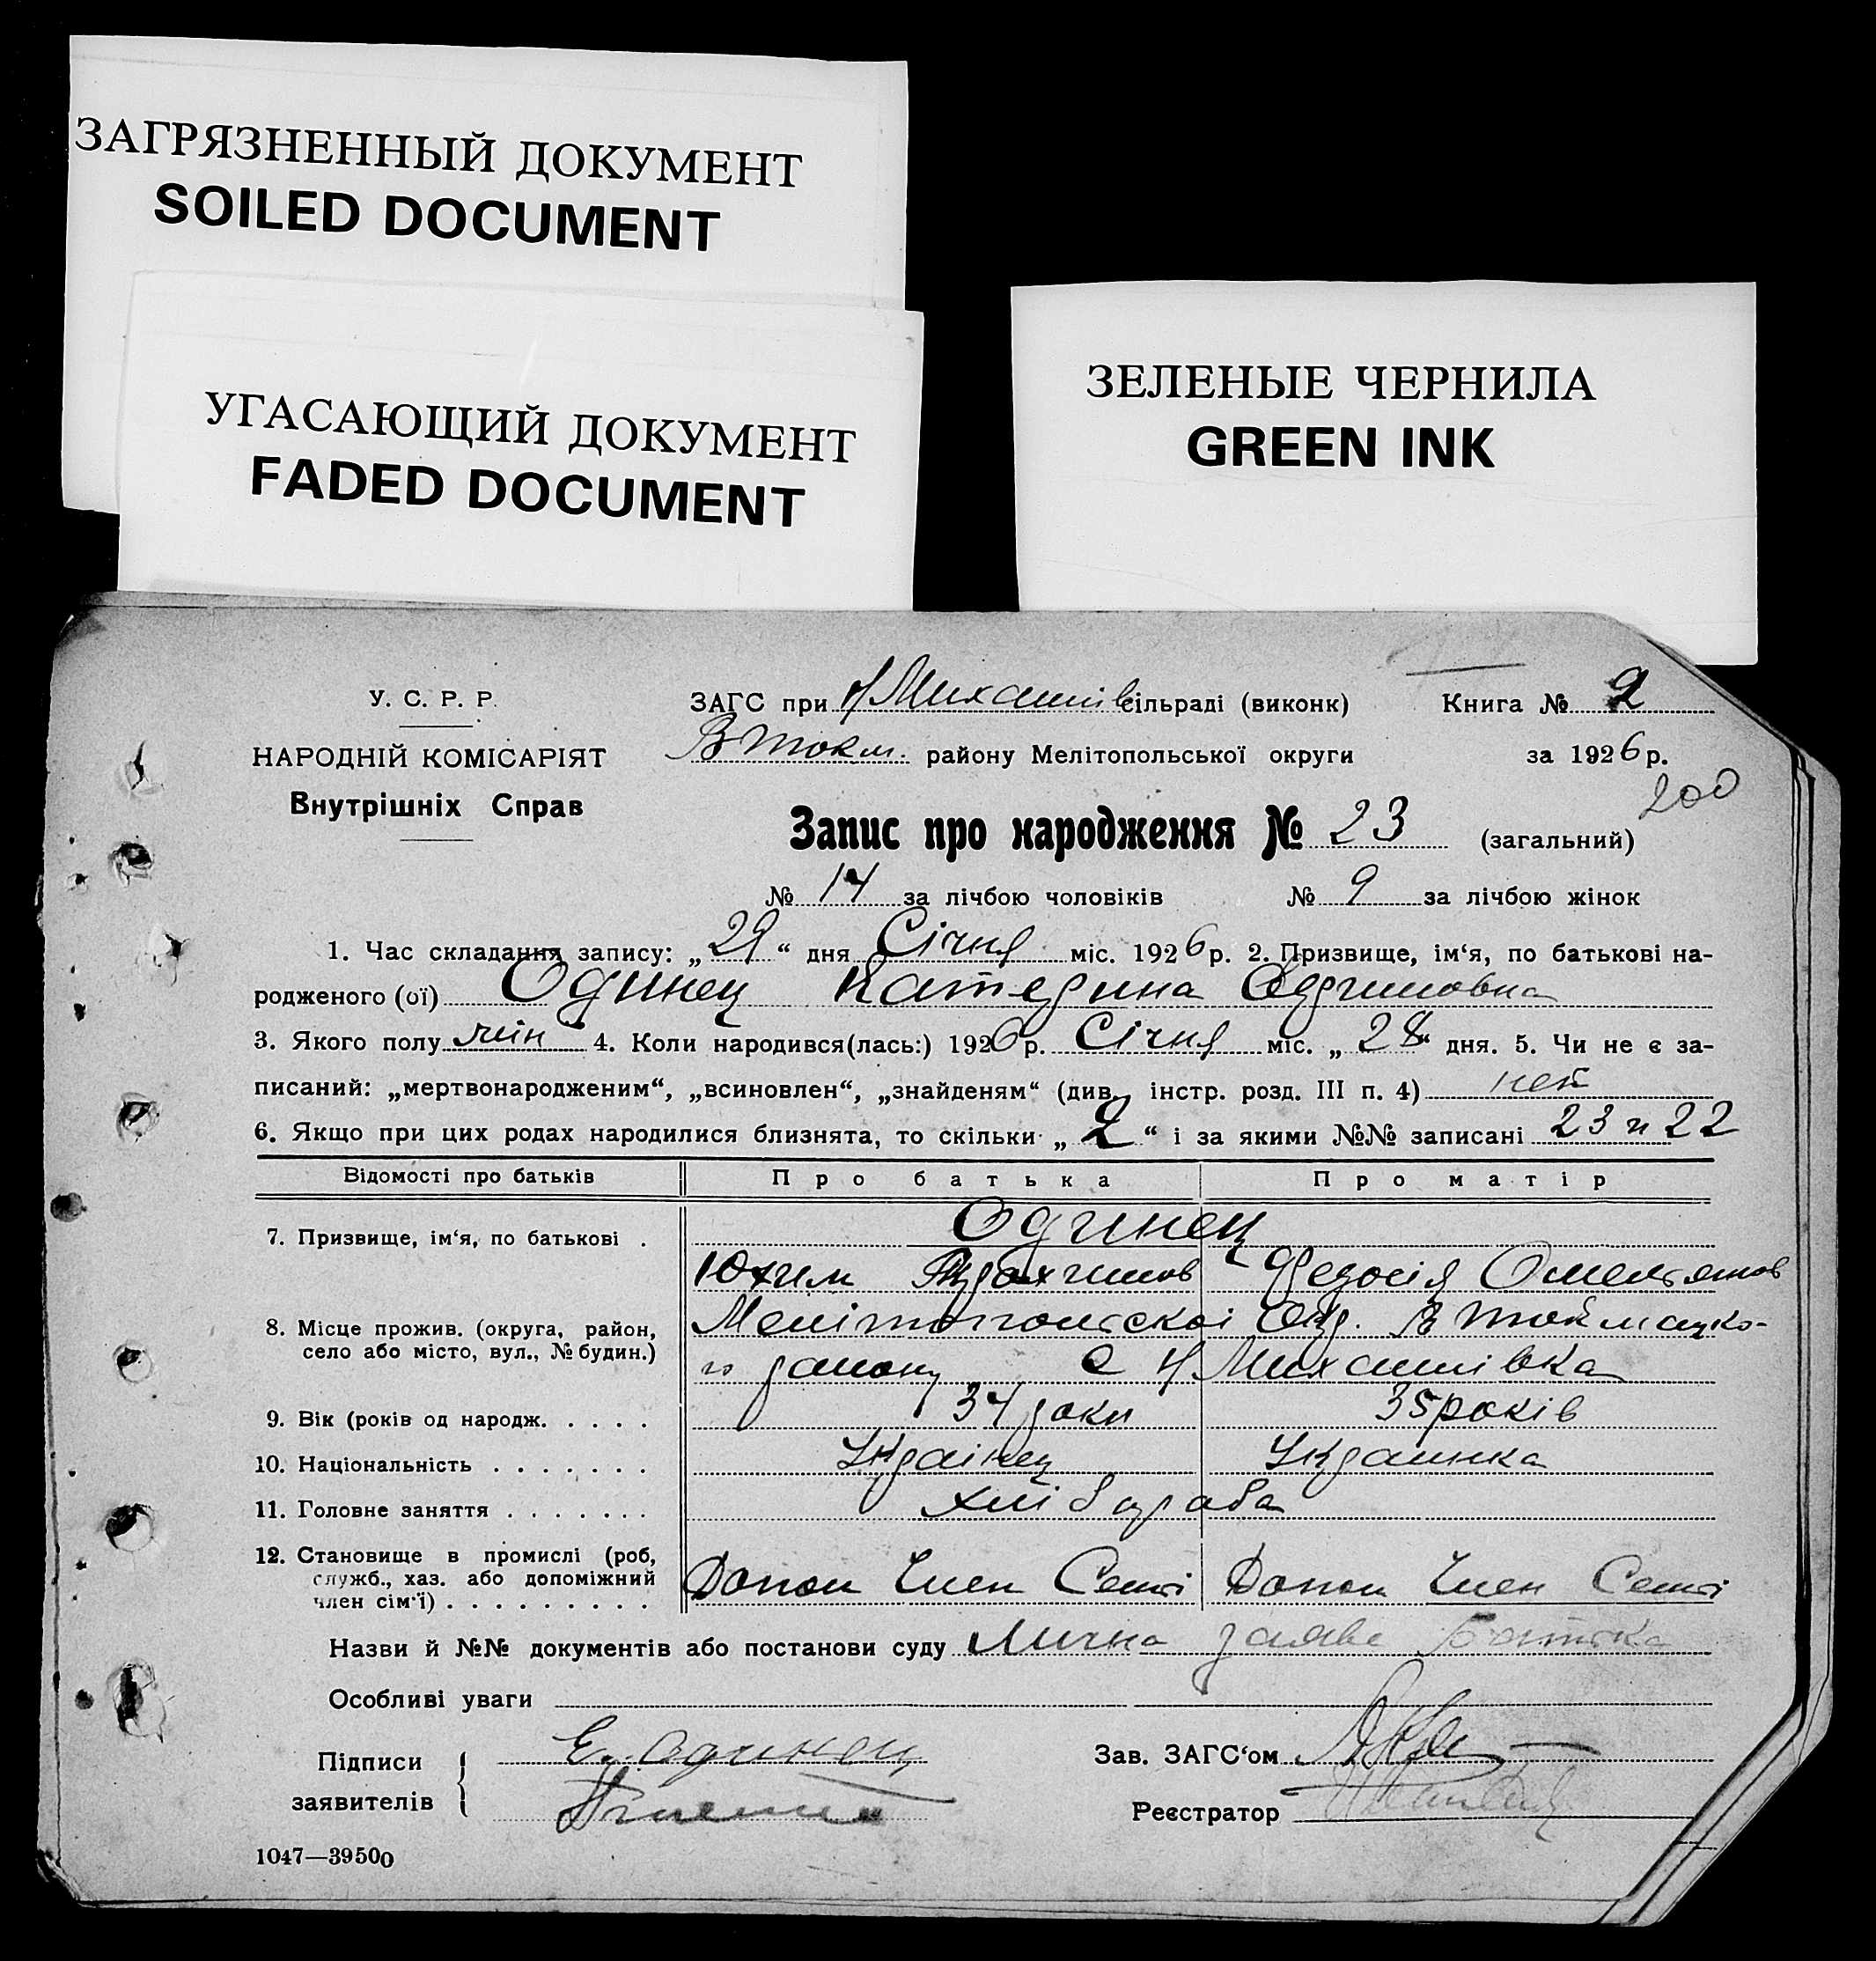 ЗАГРЯЗНЕННЫЙ ДОКУМЕНТ
SOILED DOCUMENT
УГАСАЮЩИЙ ДОКУМЕНТ
FADED DOCUMENT
ЗЕЛЕНЫЕ ЧЕРНИЛА
GREEN INK
У. С. Р. Р.
НАРОДНІЙ КОМІСАРІЯТ
Внутрішніх Справ
ЗАГС при Н Михайлів сільраді (виконк) Книга № 2
В Токм. району Мелітопольської округи за 1926 р.
200
Запис про народження № 23 (загальний)
№ 14 за лічбою чоловіків № 9 за лічбою жінок
1. Час складання запису: „29“ дня Січня міс. 1926 р. 2. Призвище, ім‘я, по батькові на-
родженого (ої) Одинец Катерина
3. Якого полу жін 4. Коли народився(лась:) 1926 р. Січня міс. „28“ дня. 5. Чи не є за-
писаний: „мертвонародженим“, „всиновлен“, „знайденям“ (див. інстр. розд. III п. 4) нет
6. Якщо при цих родах народилися близнята, то скільки „2“ і за якими №№ записані 23 и 22
Відомості про батьків Про батька Про матір
7. Призвище, ім‘я, по батькові . Одинец
Юхим Федосія Омельянов
8. Місце прожив. (округа, район, село або місто, вул., № будин.) Мелітопольскоі Окр. В Токмацко-
го району С Н Михайлівка
9. Вік (років од народж. . . . . 34 роки 35 років
10. Національність . . . . . . . Украінец Украинка
11. Головне заняття . . . . . . . хлібороба
12. Становище в промислі (роб, служб., хаз. або допоміжний член сім‘ї) . . . . . . . . . Допом Член Семі Допом Член Семі
Назви й №№ документів або постанови суду Лична заява Батька
Особливі уваги
Підписи заявителів Е. Одинец
Зав. ЗАГС‘ом
Реєстратор
1047—39500